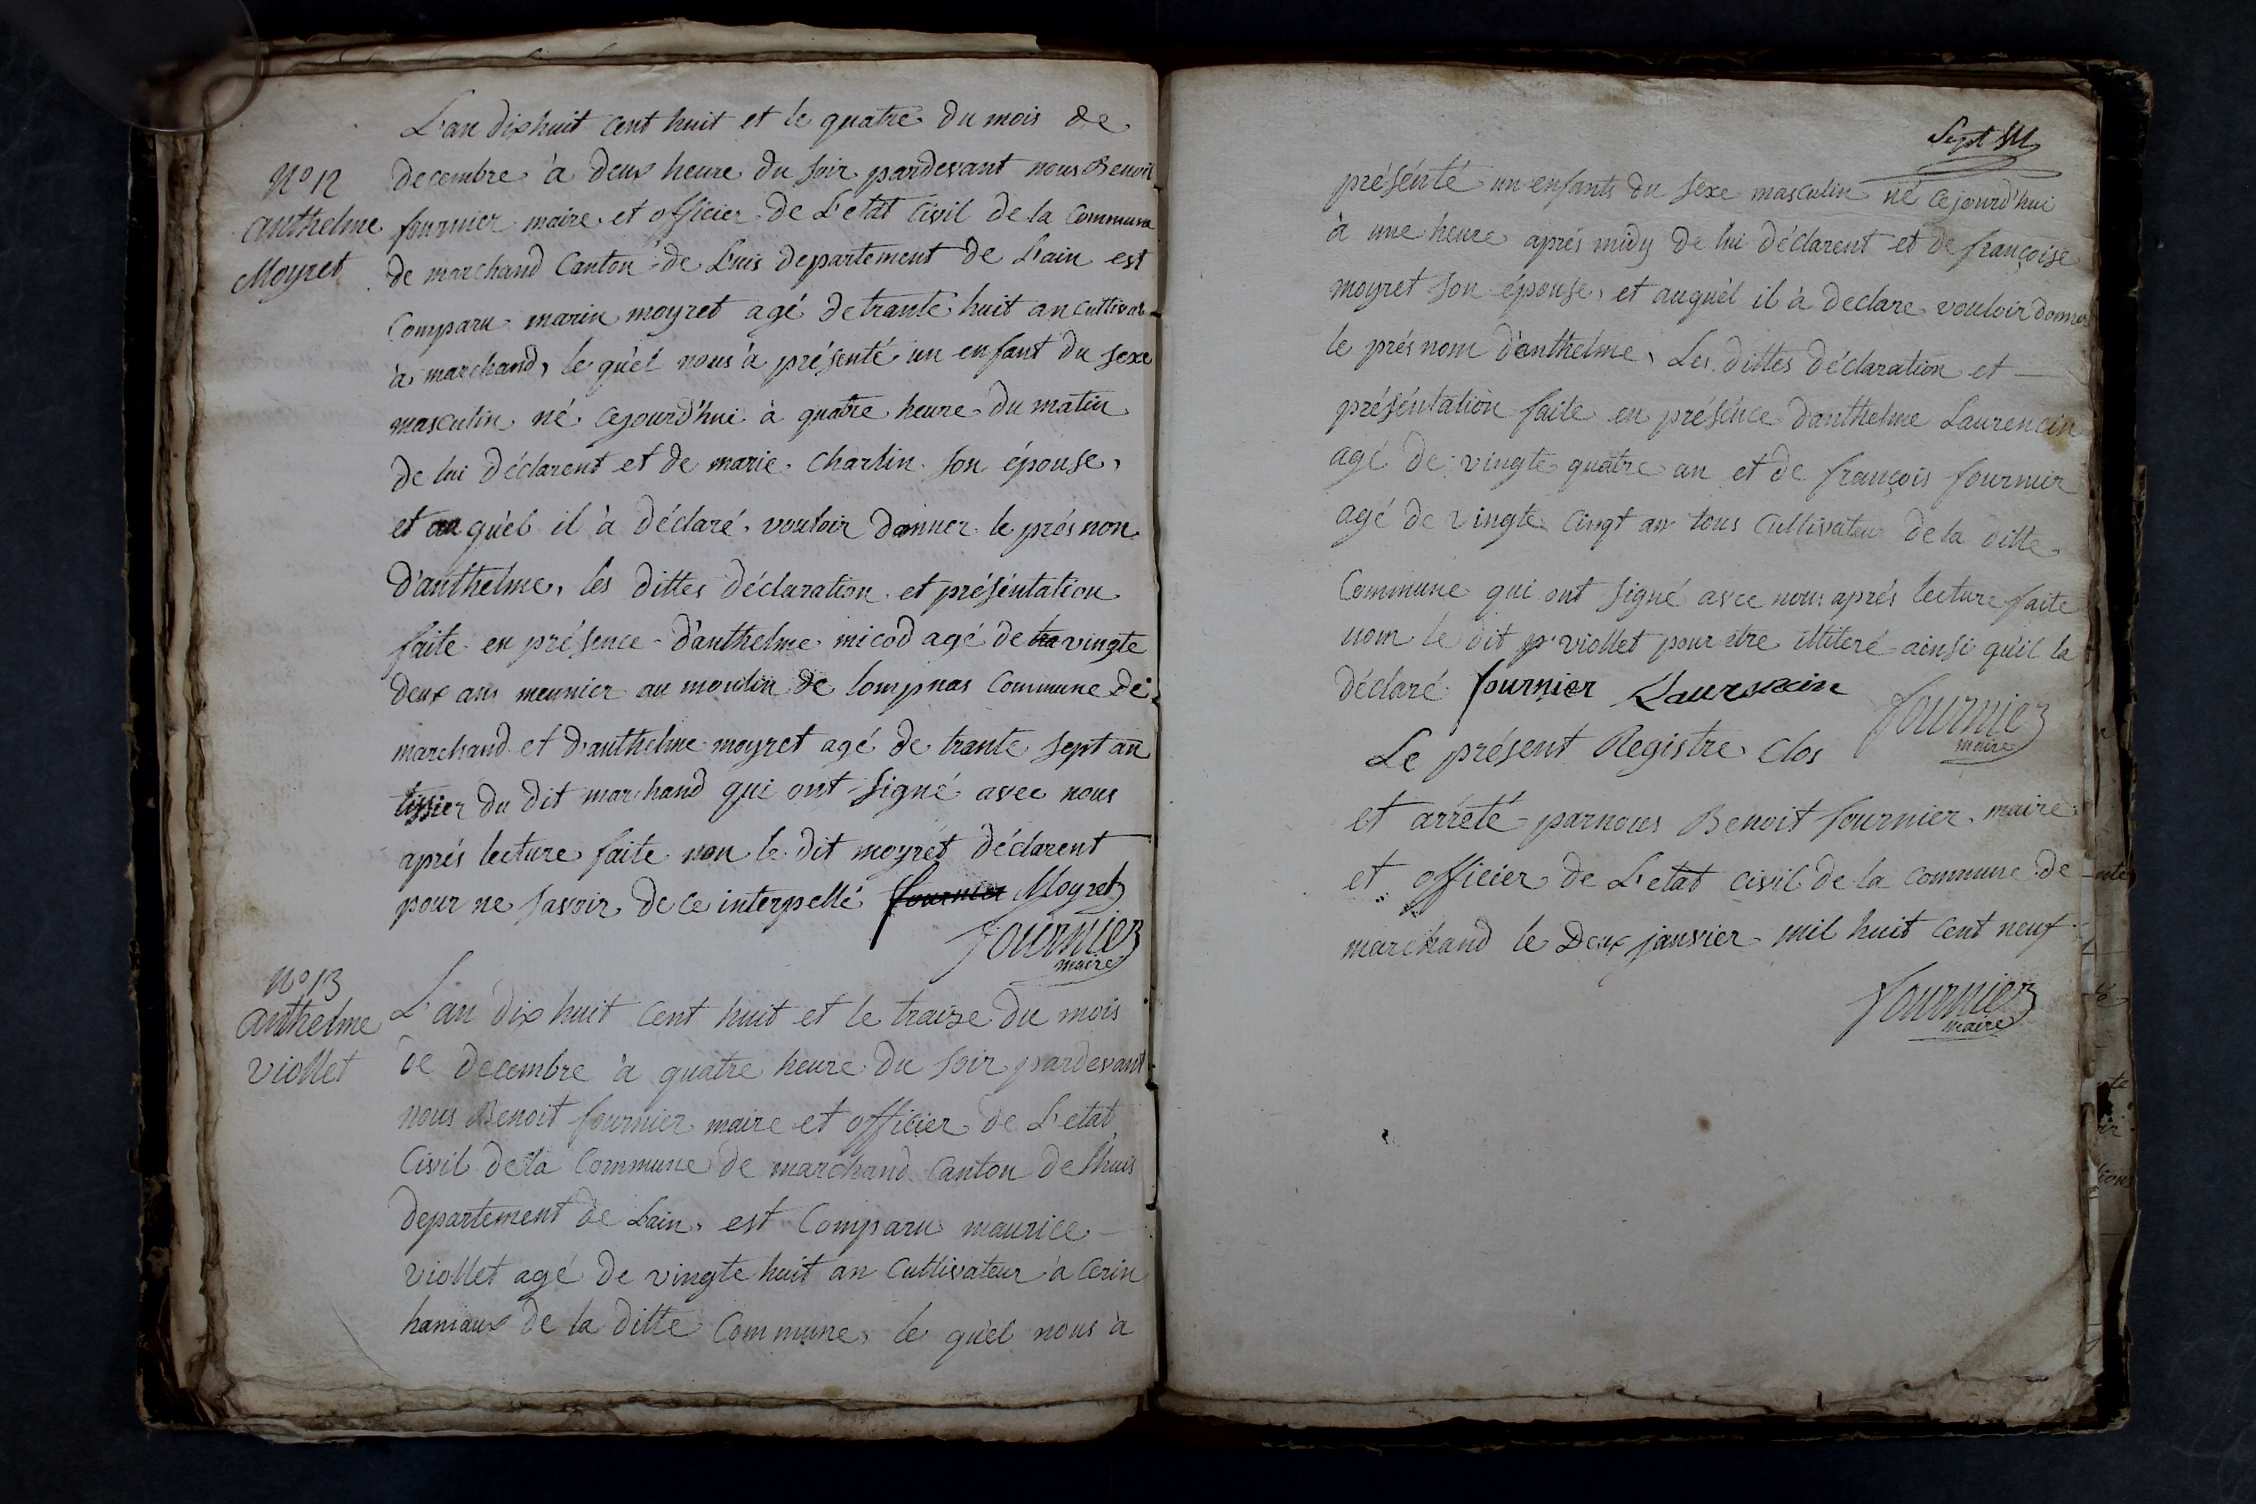 L'an dix huit cent huit et le quatre du mois de
N° 12
anthelme
Moyret
decembre à deux heure du soir pardevant nous Benoit
fournier maire et officier de L'etat Civil de la Commune
de marchand Canton de Luis departement de Lain est
Comparu marin moyret agé de trante huit an cultivat
à marchand, le quèl nous à présenté un enfant du sexe
masculin né cejourd'hui à quatre heure du matin
de lui déclarent et de marie charlin son épouse,
et au quèl il à déclaré vouloir donner le présnon
d'anthelme, les dittes déclaration et présentation
faite en présence d'anthelme micod agé de tra vingte
deux ans meunier au moulin de lompnas Commune de
marchand et d'anthelme moyret agé de trante sept an
tissier du dit marchand qui ont signé avec nous
aprés lecture faite non le dit moyrét déclarent
pour ne savoir de ce interpellé fournier Moyret
fournier
maire
N° 13
anthelme
viollet
L'an dix huit cent huit et le traize du mois
de decembre à quatre heure du soir pardevant
nous Benoit fournier maire et officier de L'etat
Civil de la Commune de marchand Canton de Lhuis
departement de Lain, est Comparu maurice
viollet agé de vingte huit an Cultivateur à Cerin
hamaux de la ditte Commune, le quèl nous à
Sept
présénté un enfants du sexe masculin né cejourd'hui
à une heure aprés midy de lui déclarent et de françoise
moyret son épouse, et auquèl il à declare vouloir donner
le présnom d'anthelme, Les dittes déclaration et
présentation faite en présence d'anthelme Laurencin
agé de vingte quatre an et de françois fournier
agé de vingte cinqt an tous Cultivateur de la ditte
Commune qui ont signé avec nous aprés lecture faite
nom le dit viollet pour etre illiteré ainsi quil la
déclaré fournier Laurencin
fournier
maire
Le présent Registre Clos
et arrété parnous Benoit fournier maire
et officier de L'etat civil de la commune de
marchand le Deux janvier mil huit cent neuf
fournier
maire